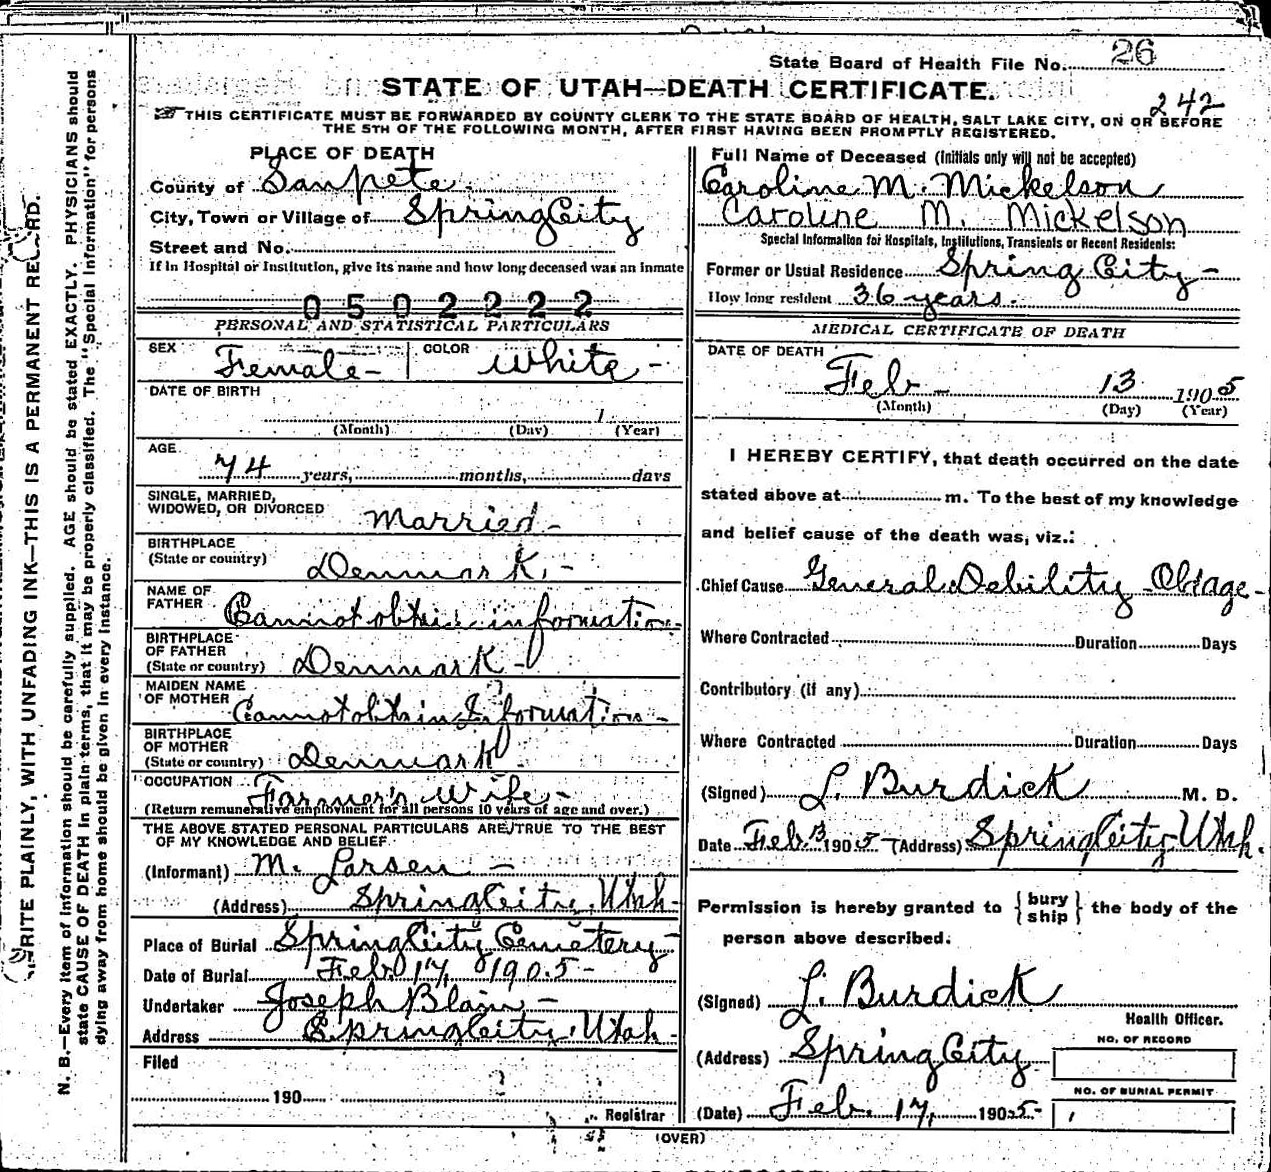 State Board of Health File No. 26
STATE OF UTAH—DEATH CERTIFICATE.
242
THIS CERTIFICATE MUST BE FORWARDED BY COUNTY CLERK TO THE STATE BOARD OF HEALTH, SALT LAKE CITY, ON OR BEFORE
THE 5TH OF THE FOLLOWING MONTH, AFTER FIRST HAVING BEEN PROMPTLY REGISTERED.
PLACE OF DEATH
County of Sanpete
City, Town or Village of Spring City
Street and No.
If in Hospital or Institution, give its name and how long deceased was an inmate
0502222
PERSONAL AND STATISTICAL PARTICULARS
SEX Female - COLOR White -
DATE OF BIRTH
1
(Month) (Day) (Year)
AGE
74 years, months, days
SINGLE, MARRIED,
WIDOWED, OR DIVORCED Married -
BIRTHPLACE
(State or country) Denmark. -
NAME OF
FATHER Cannot obtain information -
BIRTHPLACE
OF FATHER
(State or country) Denmark -
MAIDEN NAME
OF MOTHER Cannot obtain Information -
BIRTHPLACE
OF MOTHER
(State or country) Denmark
OCCUPATION Farmer's Wife -
(Return remunerative employment for all persons 10 years of age and over.)
THE ABOVE STATED PERSONAL PARTICULARS ARE TRUE TO THE BEST
OF MY KNOWLEDGE AND BELIEF
(Informant) M. Larsen -
(Address) Spring City, Utah -
Place of Burial Spring City Cemetery
Date of Burial Feb 17, 1905 -
Undertaker Joseph Blain -
Address Spring City, Utah -
Filed
190
Registrar
Full Name of Deceased (Initials only will not be accepted)
Caroline M. Mickelson
Caroline M. Mickelson
Special Information for Hospitals, Institutions, Transients or Recent Residents:
Former or Usual Residence Spring City -
How long resident 36 years.
MEDICAL CERTIFICATE OF DEATH
DATE OF DEATH
Feb - 13 1905
(Month) (Day) (Year)
I HEREBY CERTIFY, that death occurred on the date
stated above at m. To the best of my knowledge
and belief cause of the death was, viz.:
Chief Cause General Debility Oldage -
Where Contracted Duration Days
Contributory (if any)
Where Contracted Duration Days
(Signed) L. Burdick M. D.
Date Feb. 13 1905 (Address) Spring City Utah.
Permission is hereby granted to { bury ship } the body of the
person above described.
(Signed) L. Burdick
Health Officer.
(Address) Spring City
NO. OF RECORD
NO. OF BURIAL PERMIT
(Date) Feb. 17, 1905 -
(OVER)
WRITE PLAINLY, WITH UNFADING INK—THIS IS A PERMANENT RECORD.
N. B.—Every item of information should be carefully supplied. AGE should be stated EXACTLY. PHYSICIANS should
state CAUSE OF DEATH in plain terms, that it may be properly classified. The "Special Information" for persons
dying away from home should be given in every instance.